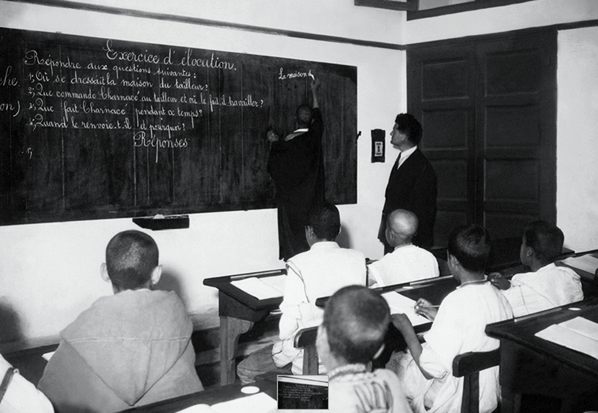 Exercice d'élocution.
Répondre aux questions suivantes:
1, Où se dressait la maison du tailleur?
2, Que commande Charnacé au tailleur et où le fait-il travailler?
3, Que fait Charnacé pendant ce temps?
4, Quand le renvoie-t-il et pourquoi?
Réponses
La maison d